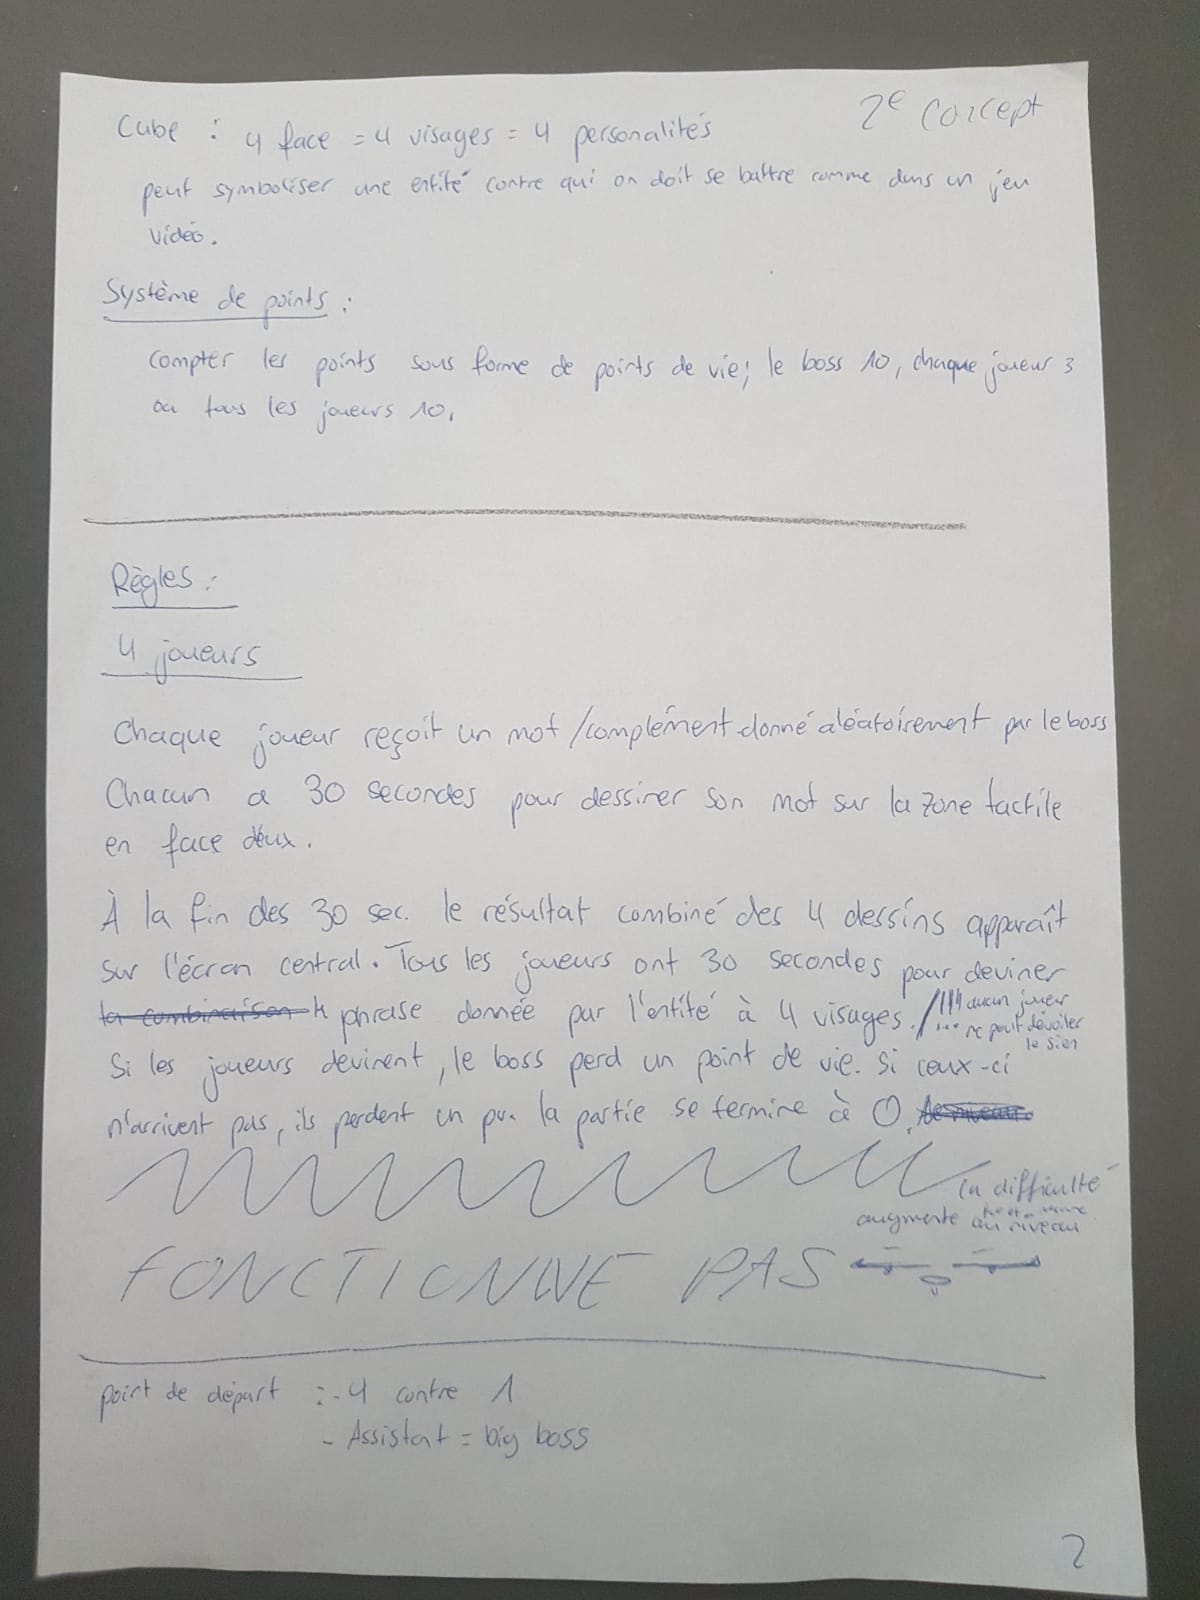 2e concept
Cube : 4 face = 4 visages = 4 personalités
peut symboliser une entité contre qui on doit se battre comme dans un jeu
vidéo.
Système de points :
compter les points sous forme de points de vie; le boss 10, chaque joueur 3
ou tous les joueurs 10.
Règles :
4 joueurs
Chaque joueur reçoit un mot /complément donné aléatoirement par le boss
Chacun a 30 secondes pour dessiner son mot sur la zone tactile
en face d'eux.
À la fin des 30 sec. le résultat combiné des 4 dessins apparaît
sur l'écran central. Tous les joueurs ont 30 secondes pour deviner
la combinaison la phrase donnée par l'entité à 4 visages. / !!! aucun joueur
ne peut dévoiler
le sien
Si les joueurs devinent, le boss perd un point de vie. Si ceux-ci
n'arrivent pas, ils perdent un pv. la partie se termine à 0.
la difficulté
augmente
au niveau
FONCTIONNE PAS
point de départ : - 4 contre 1
- Assistant = big boss
2